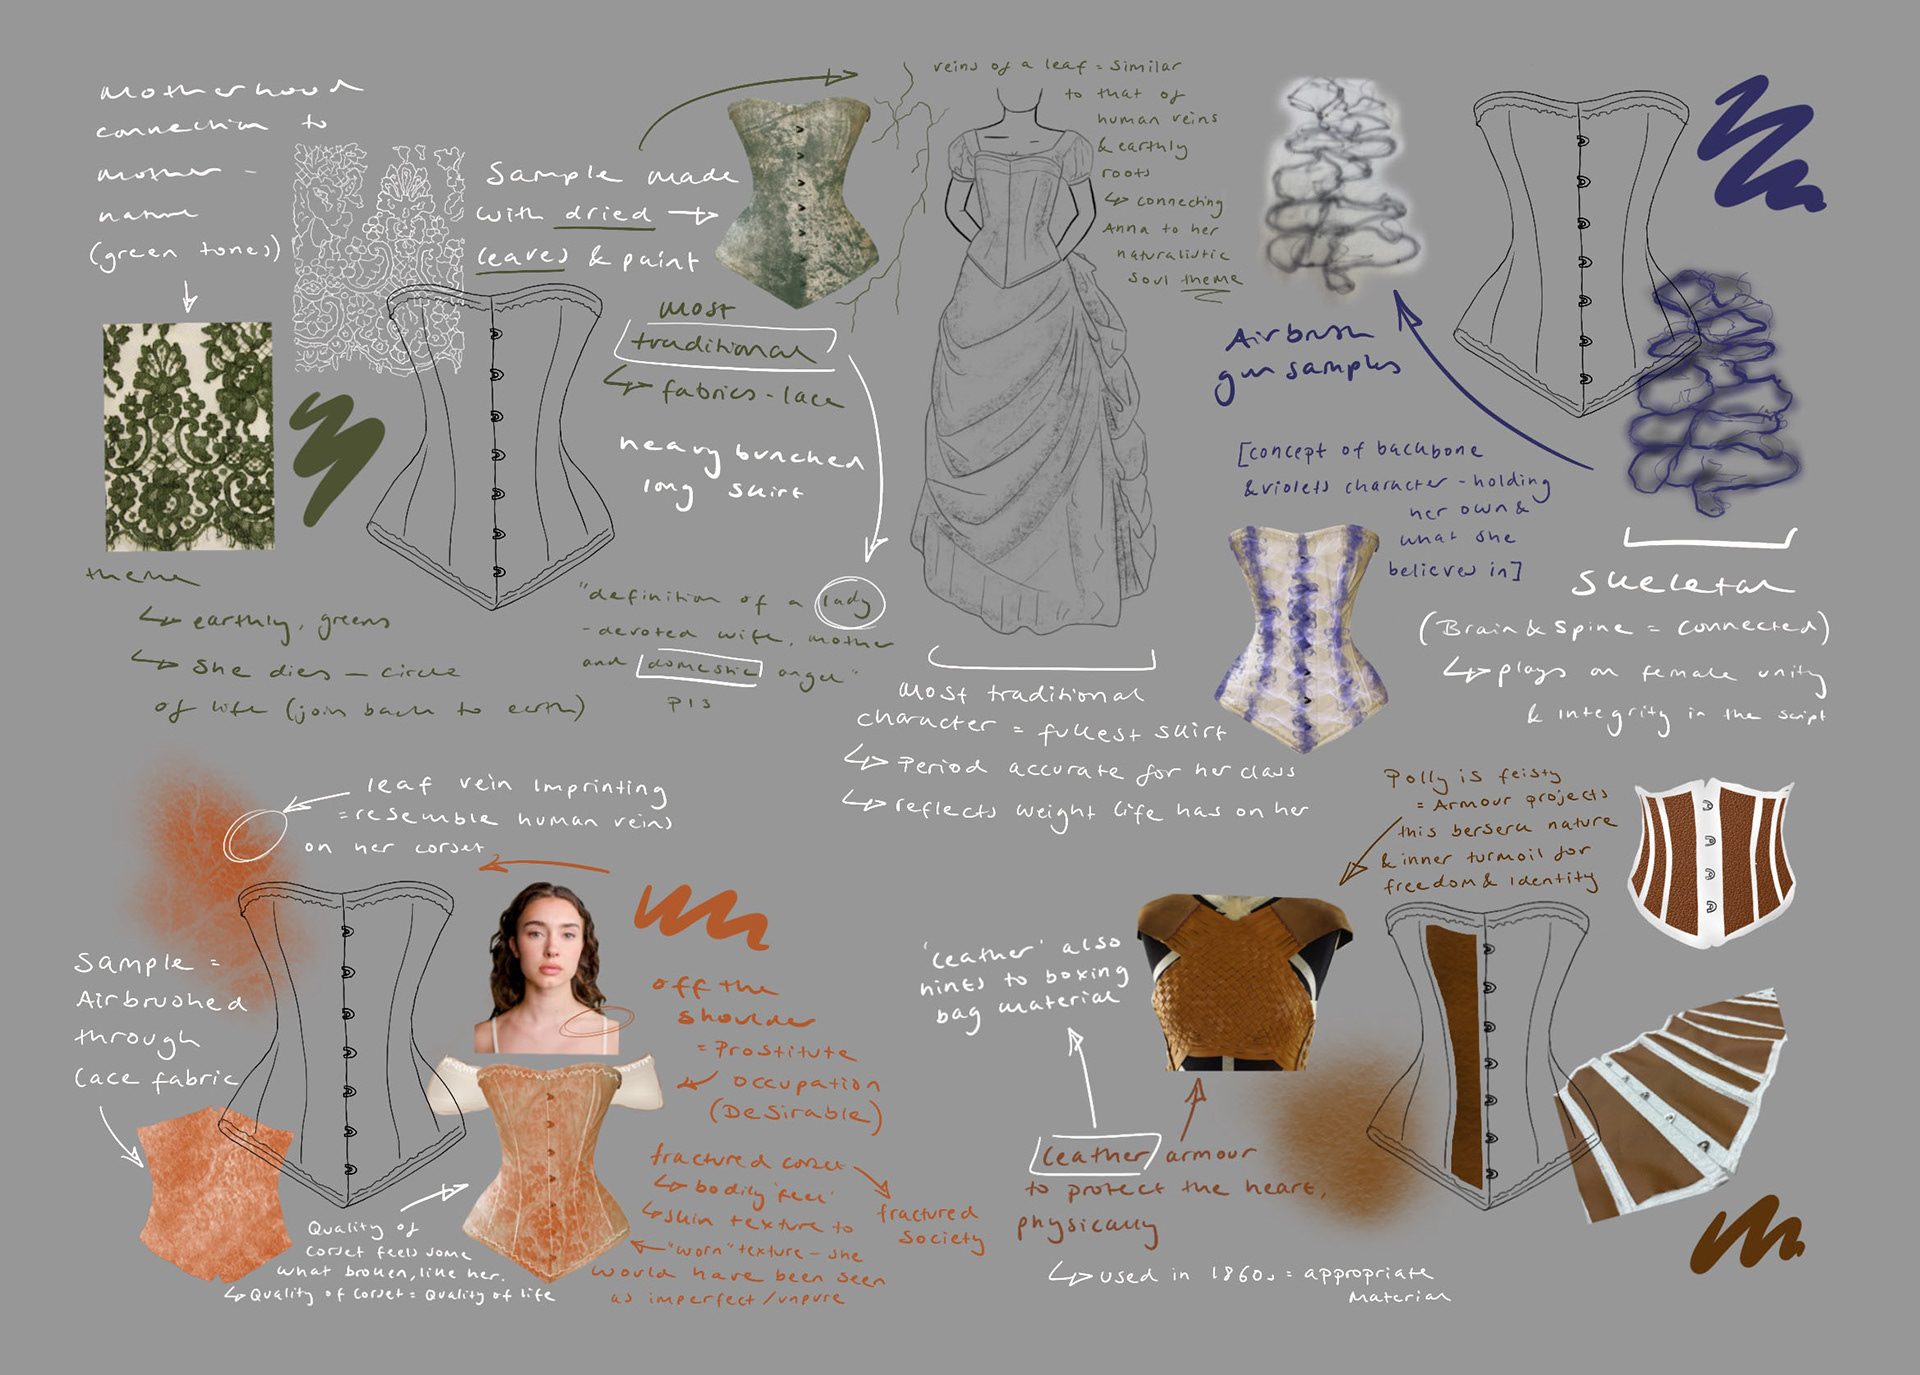 Motherhood
connection to
mother -
nature
(green tones)
Sample made
with dried
leaves & paint
most
traditional
fabrics - lace
heavy bunched
long skirt
theme
earthly, greens
She dies - circle
of life (join back to earth)
"definition of a lady
- devoted wife, mother
and domestic angel"
P13
veins of a leaf = similar
to that of
human veins
& earthly
roots
connecting
Anna to her
naturalistic
soul theme
most traditional
character = fullest skirt
Period accurate for her class
reflects weight life has on her
Airbrush
gun samples
[concept of backbone
& violets character - holding
her own &
what she
believes in]
Skeletal
(Brain & Spine = connected)
plays on female unity
& integrity in the script
leaf vein imprinting
= resemble human veins
on her corset
Sample =
Airbrushed
through
lace fabric
off the
shoulder
= Prostitute
occupation
(Desirable)
fractured corset
bodily 'feel'
skin texture to
"worn" texture - she
would have been seen
as imperfect/unpure
fractured
society
Quality of
corset feels some
what broken, like her.
Quality of corset = Quality of life
Polly is feisty
= Armour projects
this berserk nature
& inner turmoil for
freedom & identity
'leather' also
hints to boxing
bag material
leather armour
to protect the heart,
physically
used in 1860s = appropriate
material